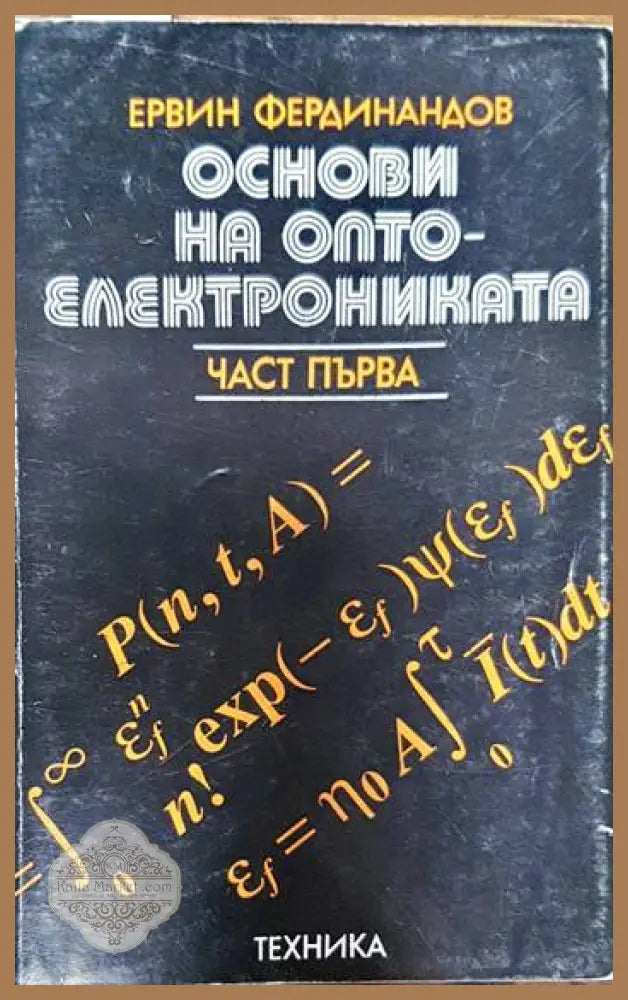 ЕРВИН ФЕРДИНАНДОВ
ОСНОВИ
НА ОПТО-
ЕЛЕКТРОНИКАТА
ЧАСТ ПЪРВА
P(n, t, A) =
= ∫₀^∞ ε_f^n / n! exp(− ε_f) ψ(ε_f) dε_f
ε_f = η₀ A ∫₀^τ Ī(t)dt
ТЕХНИКА